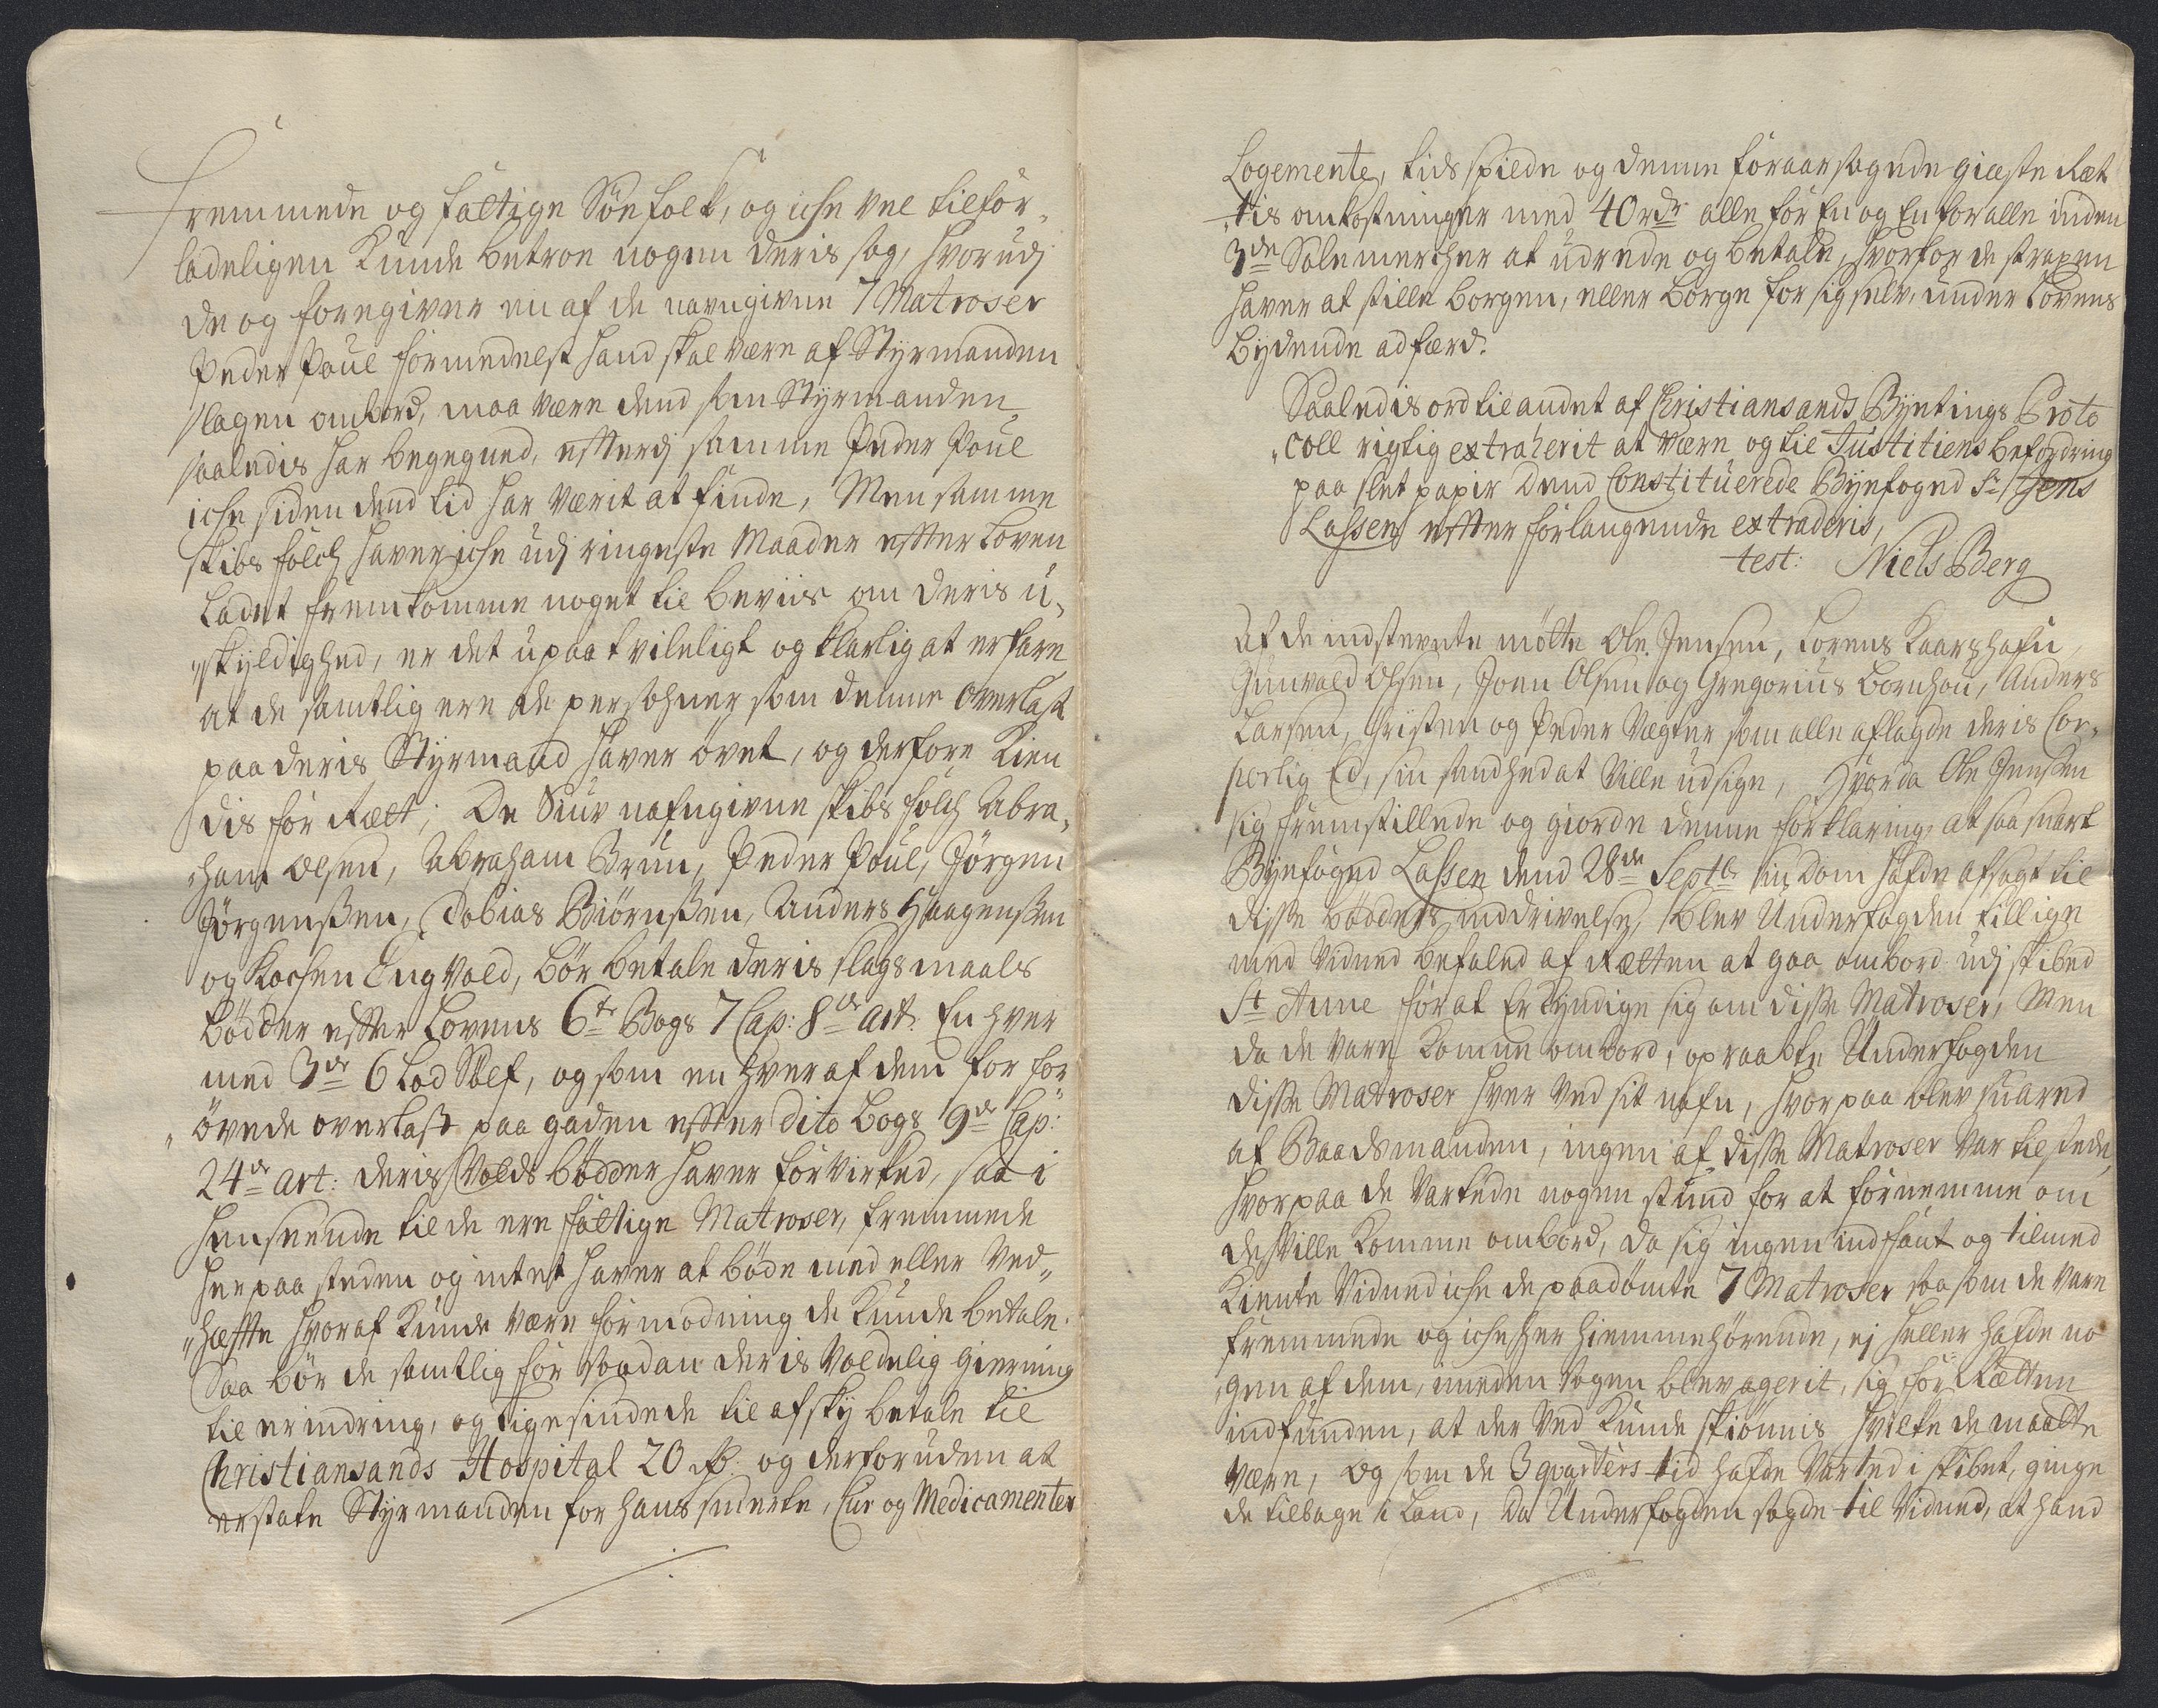 fremmede og fattige Söefolk, og iche vel tilfor„
ladeligen kunde betroe nogen deris sag, hvorudj
de og foregiver en af de navngivne 7 Matroser
Peder Poul formedelst hand skal være af Styrmanden
slagen ombord, maa være dend som Styrmanden
saaledis har begegned, efterdj samme Peder Poul
iche siden dend tid har værit at finde, Men samme
skibs folch haver iche udj ringeste Maader efter Loven
Ladet fremkomme noget til beviis om deris u„
„skyldighed, er det upaatvileligt og klarlig at erfare
at de samtlig ere de persohner som denne overlast
paa deris Styrmand haver övet, og derfore kien
dis for Rætt; De Siuv nafngivne skibs folch Abra„
„ham Olsen, Abraham Brun, Peder Poul, Jörgen
Jörgenssen, Tobias Biörnssen, Anders Haagenssen
og Kochen Engvold, bör betale deris slagsmaals
bödder efter Lovens 6te Bogs 7 Cap: 8de art. En hver
med 3de 6 Lod Sölf, og som en hver af dem for for
„övede overlast paa gaden efter dito bogs 9de Cap:
24de art: deris Volds bödder haver forvirked, saa i
henseende til de ere fattige Matroser, fremmede
her paa steden og intet haver at böde med eller ved„
„hæfte hvoraf kunde være formodning de kunde betale.
Saa bör de samtlig for saadan deris voldelig gierning
til erindring, og ligesindede til afsky betale til
Christiansands Hospital 20 rd: og derforuden at
erstate Styrmanden for hans smerte, Cur og Medicamenter
Logemente, tids spilde og denne foraarsagede giæste Ræt
„tis omkostninger med 40 rdr alle for En og En for alle inden
3de Solemercher at udrede og betale, hvorfor de straxen
haver at stille borgen, eller borge for sig selv, under Lovens
bydende adfærd.
Saaledis ord til andet af Christiansands Byetings Proto
„coll rigtig extraherit at være og til Justitiens befordring
paa slet papir dend Constituerede Byefoged Sr Jens
Lassen efter forlangende extraderis,
test: Niels Berg
Af de indstevnte mötte Ole Jensen, Lorens
Gunvald Olsen, Joen Olsen og Gregorius Anders
Larsen, Christen og Peder Vægter som alle aflagde deris Cor„
porlig Ed, sin sandhed at ville udsige, Hvorda Ole Jenssen
sig fremstillede og giorde denne forklaring, at saa snart
Byefoged Lassen dend 28de Septbr sin dom hafde afsagt til
disse bödders inddrivelse, blev Underfogden tillige
med Vidned befaled af Rætten at gaa ombord udj skibed
St Anne for at erkyndige sig om disse Matroser, Men
da de vare komne ombord, opraabte Underfogden
disse Matroser hver ved sit nafn, hvorpaa blev svared
af Baadsmanden, ingen af disse Matroser var tilstede,
hvorpaa de vartede nogen stund for at fornemme om
de ville komme ombord, da sig ingen indfant og tilmed
kiente Vidned iche de paadömte 7 Matroser saasom de vare
fremmede og iche her hiemmehörende, ej heller hafde no
„gen af dem, imeden sagen blev agerit, sig for Rætten
indfunden, at der ved kunde skiönnis hvilke de maatte
være, Og som de 3 qvarters tid hafde varted i skibet, ginge
de tilbage i Land, da Underfogden sagde til Vidned, at hand